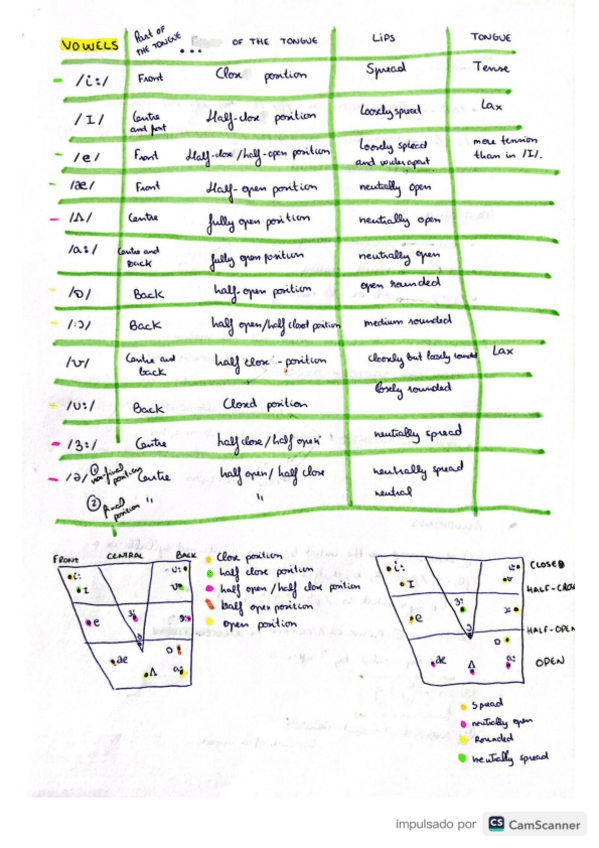 VOWELS Part of THE TONGUE ... OF THE TONGUE LIPS TONGUE
/i:/ Front Close position Spread Tense
/I/ Centre and front Half-close position loosely spread Lax
/e/ Front Half-close/half-open position loosely spread and wider apart more tension than in /I/.
/æ/ Front Half-open position neutrally open
/Λ/ Centre fully open position neutrally open
/a:/ Centre and back fully open position neutrally open
/ɒ/ Back half-open position open rounded
/:ɔ/ Back half open/half closed position medium rounded
/ʊ/ Centre and back half close - position closely but loosely rounded Lax
/u:/ Back Closed position closely rounded
/ɜ:/ Centre half close/half open neutrally spread
/ə/ ① non-final position Centre half open/half close neutrally spread
② final position " " neutral
FRONT CENTRAL BACK
i: u:
I ʊ
e ɜ:
ə
æ ɒ
Λ a:
Close position
half close position
half open/half close position
half open position
open position
i: CLOSED
I HALF-CLOSE
e ɜ:
ə HALF-OPEN
æ Λ ɒ a: OPEN
Spread
neutrally open
Rounded
neutrally spread
impulsado por CS CamScanner